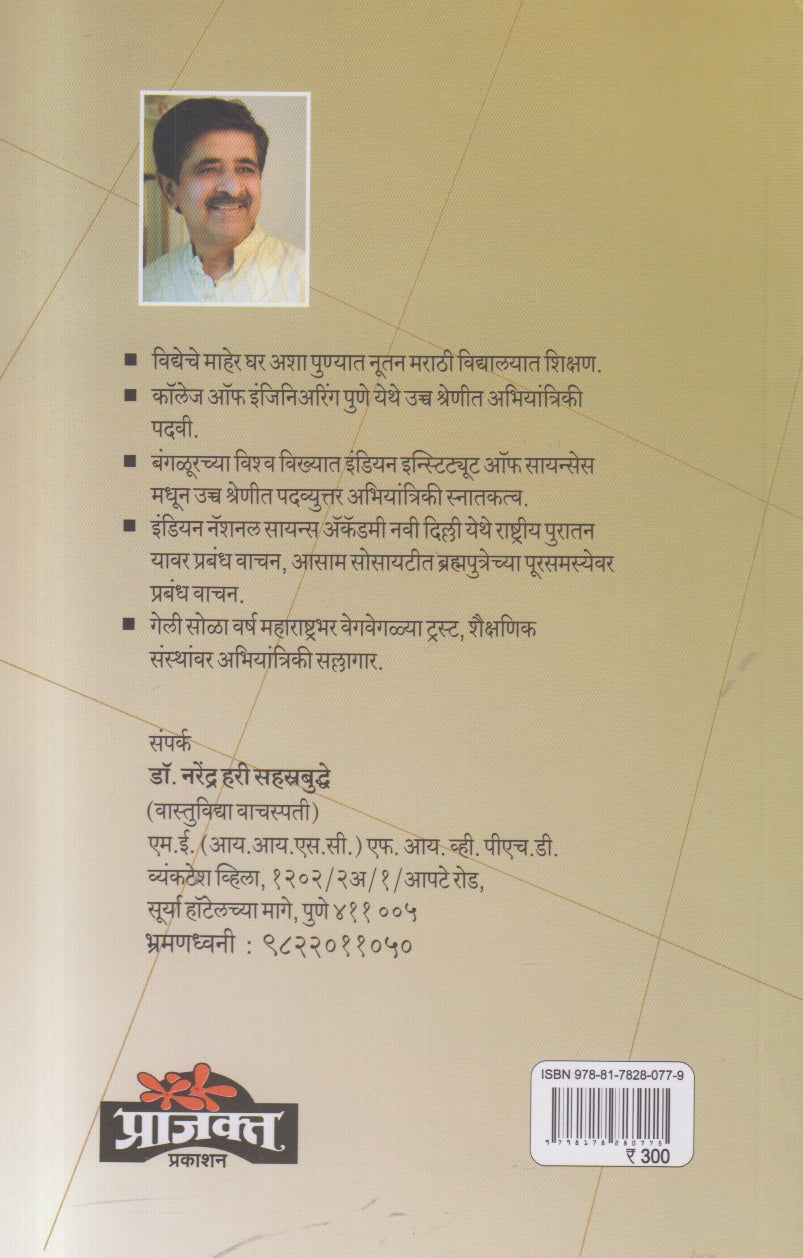 ■ विद्येचे माहेर घर अशा पुण्यात नूतन मराठी विद्यालयात शिक्षण.
■ कॉलेज ऑफ इंजिनिअरिंग पुणे येथे उच्च श्रेणीत अभियांत्रिकी
पदवी.
■ बंगळूरच्या विश्व विख्यात इंडियन इन्स्टिट्यूट ऑफ सायन्सेस
मधून उच्च श्रेणीत पदव्युत्तर अभियांत्रिकी स्नातकत्व.
■ इंडियन नॅशनल सायन्स ॲकॅडमी नवी दिल्ली येथे राष्ट्रीय पुरातन
यावर प्रबंध वाचन, आसाम सोसायटीत ब्रह्मपुत्रेच्या पूरसमस्येवर
प्रबंध वाचन.
■ गेली सोळा वर्ष महाराष्ट्रभर वेगवेगळ्या ट्रस्ट, शैक्षणिक
संस्थांवर अभियांत्रिकी सल्लागार.
संपर्क
डॉ. नरेंद्र हरी सहस्रबुद्धे
(वास्तुविद्या वाचस्पती)
एम.ई. (आय.आय.एस.सी.) एफ. आय. व्ही. पीएच.डी.
व्यंकटेश व्हिला, १२०२/२अ/१/आपटे रोड,
सूर्या हॉटेलच्या मागे, पुणे ४११ ००५
भ्रमणध्वनी : ९८२२०११०५०
प्राजक्त
प्रकाशन
ISBN 978-81-7828-077-9
9 798178 280775
₹ 300